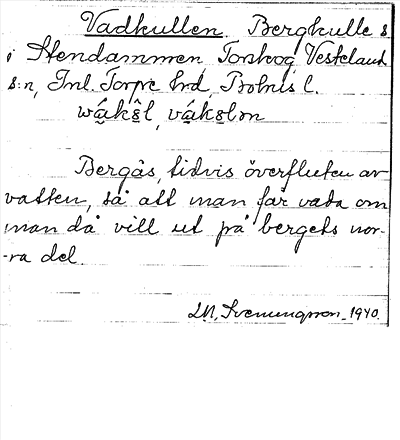 Vadkullen, Bergkulle s
i Stendammen Torskog, Vestelanda
s:n, Inl. Torpe hrd, Bohus l.
wák&l, vák&lən
Bergås, tidvis överfluten av
vatten, så att man får vada om
man då vill ut på bergets nor-
-ra del.
Svenungsson. 1940.